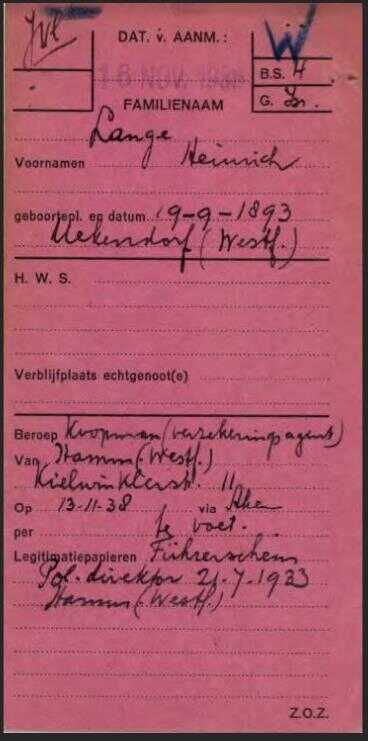 Jvl
DAT. v. AANM.:
W
16 NOV. 1938
B.S. 4
FAMILIENAAM
G. Isr.
Lange
Voornamen Heinrich
geboortepl. en datum 19-9-1893
Uekendorf (Westf.)
H. W. S.
Verblijfplaats echtgenoot(e)
Beroep Koopman (verzekeringsagent)
Van Hamm (Westf.)
11
Op 13-11-38 via Aken
per te voet.
Legitimatiepapieren Führerschein
Pol. direktor 21-7-1933
Hamm (Westf.)
Z.O.Z.